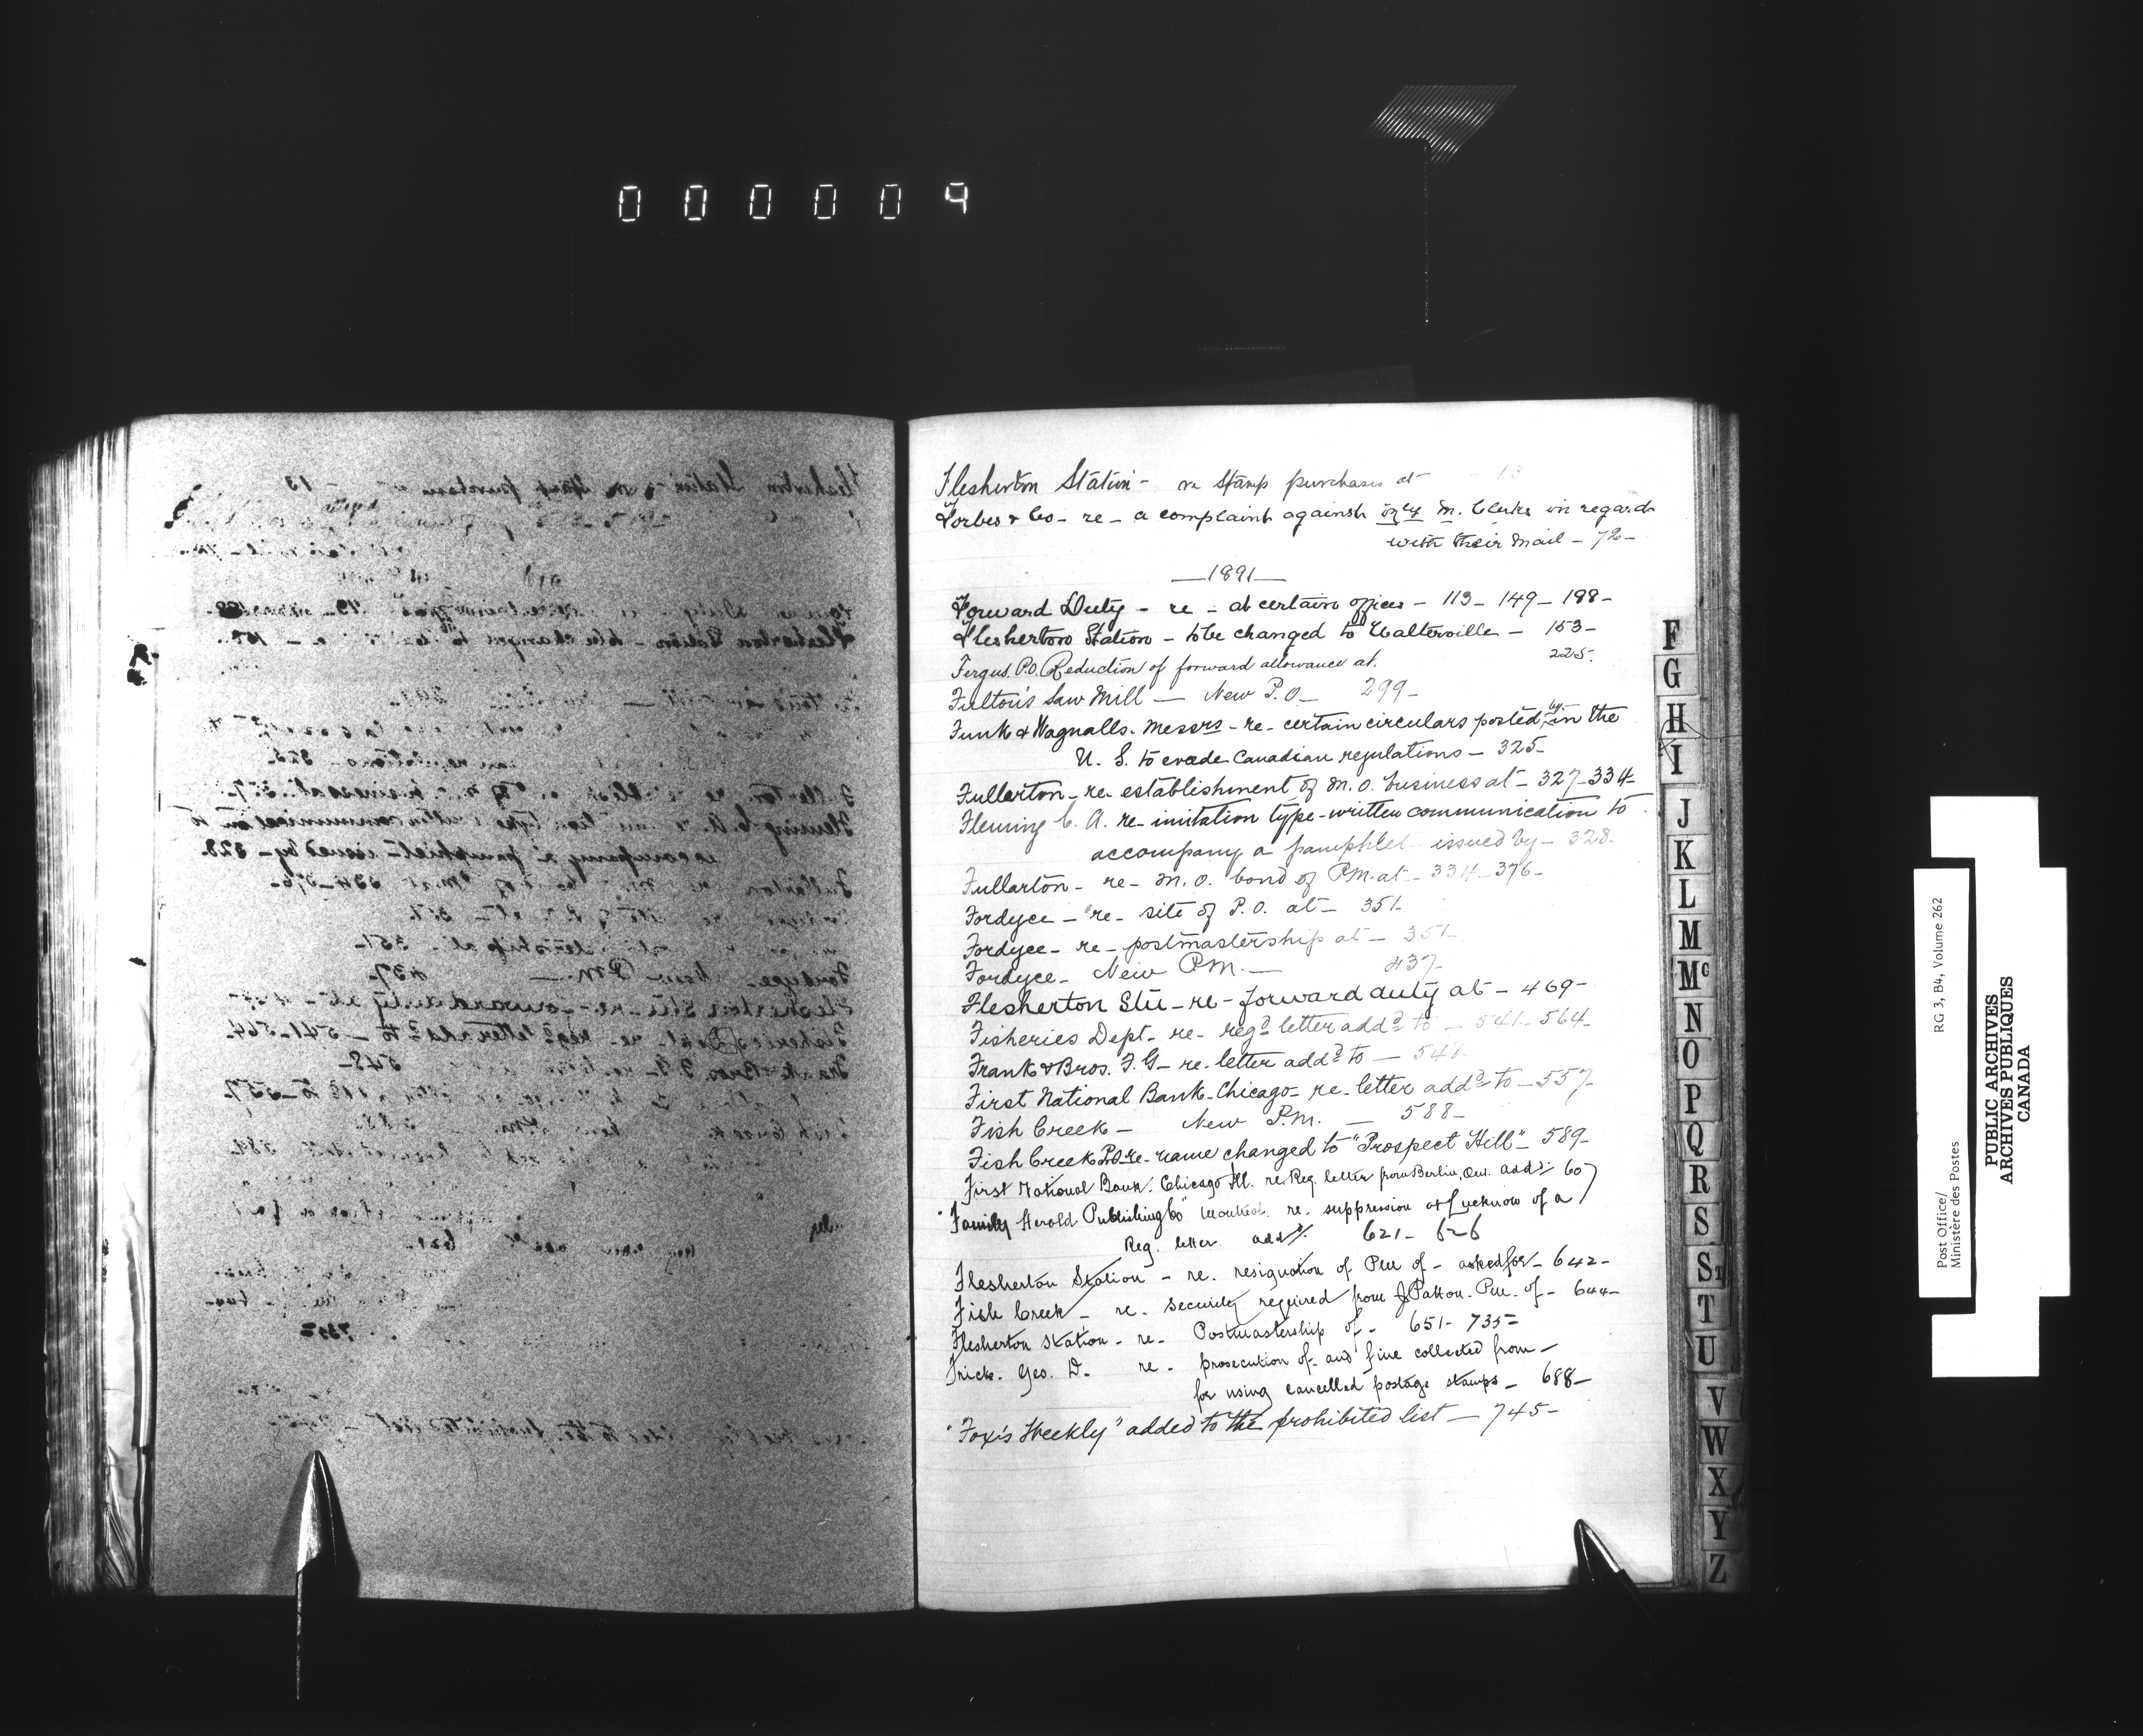 000009
Flesherton Station - re Stamp purchases at - 13
Forbes & Co - re - a complaint against Ry M. Clerks in regard
with their Mail - 72 -
- 1891 -
Forward Duty - re - at certain offices - 113 - 149 - 198 -
Flesherton Station - to be changed to - 153 -
Fergus. P.O. Reduction of forward allowance at. 225.
Fulton's Saw Mill - New P.O - 299 -
Funk & Wagnalls. Messrs - re - certain circulars posted by in the
U. S. to evade Canadian regulations - 325 -
Fullarton - re - establishment of M. O. business at - 327 - 334 -
Fleming C. A. re - imitation type-written communication to
accompany a pamphlet issued by - 328 -
Fullarton - re - M. O. bond of P.M. at - 334 - 376 -
Fordyce - re - site of P. O. at - 351 -
Fordyce - re - postmastership at - 351 -
Fordyce - New P.M. - 437 -
Flesherton Stn - re - forward duty at - 469 -
Fisheries Dept - re - regd letter addd to - 541 - 564 -
Frank & Bros. F. G - re. letter addd to - 548 -
First National Bank - Chicago - re - letter addd to - 557 -
Fish Creek - New P.M. - 588 -
Fish Creek P.O. re - name changed to "Prospect Hill" - 589 -
First National Bank. Chicago Ill. re Reg. letter from Berlin, Ont. addd 607
"Family Herald Publishing Co" Montreal. re. suppression at Lucknow of a
Reg. letter addd 621 - 626
Flesherton Station - re. resignation of P.M. of - asked for - 642 -
Fish Creek - re. Security required from J Patton. P.M. of - 644 -
Flesherton Station - re - Postmastership of - 651 - 735 =
Frick. Geo. D. re - prosecution of - and fine collected from -
for using cancelled postage stamps - 688 -
"Fox's Weekly" added to the prohibited list - 745 -
F
G
H
I
J
K
L
M
Mc
N
O
P
Q
R
S
St
T
U
V
W
X
Y
Z
Post Office/ RG 3, B4, Volume 262
Ministère des Postes
PUBLIC ARCHIVES
ARCHIVES PUBLIQUES
CANADA